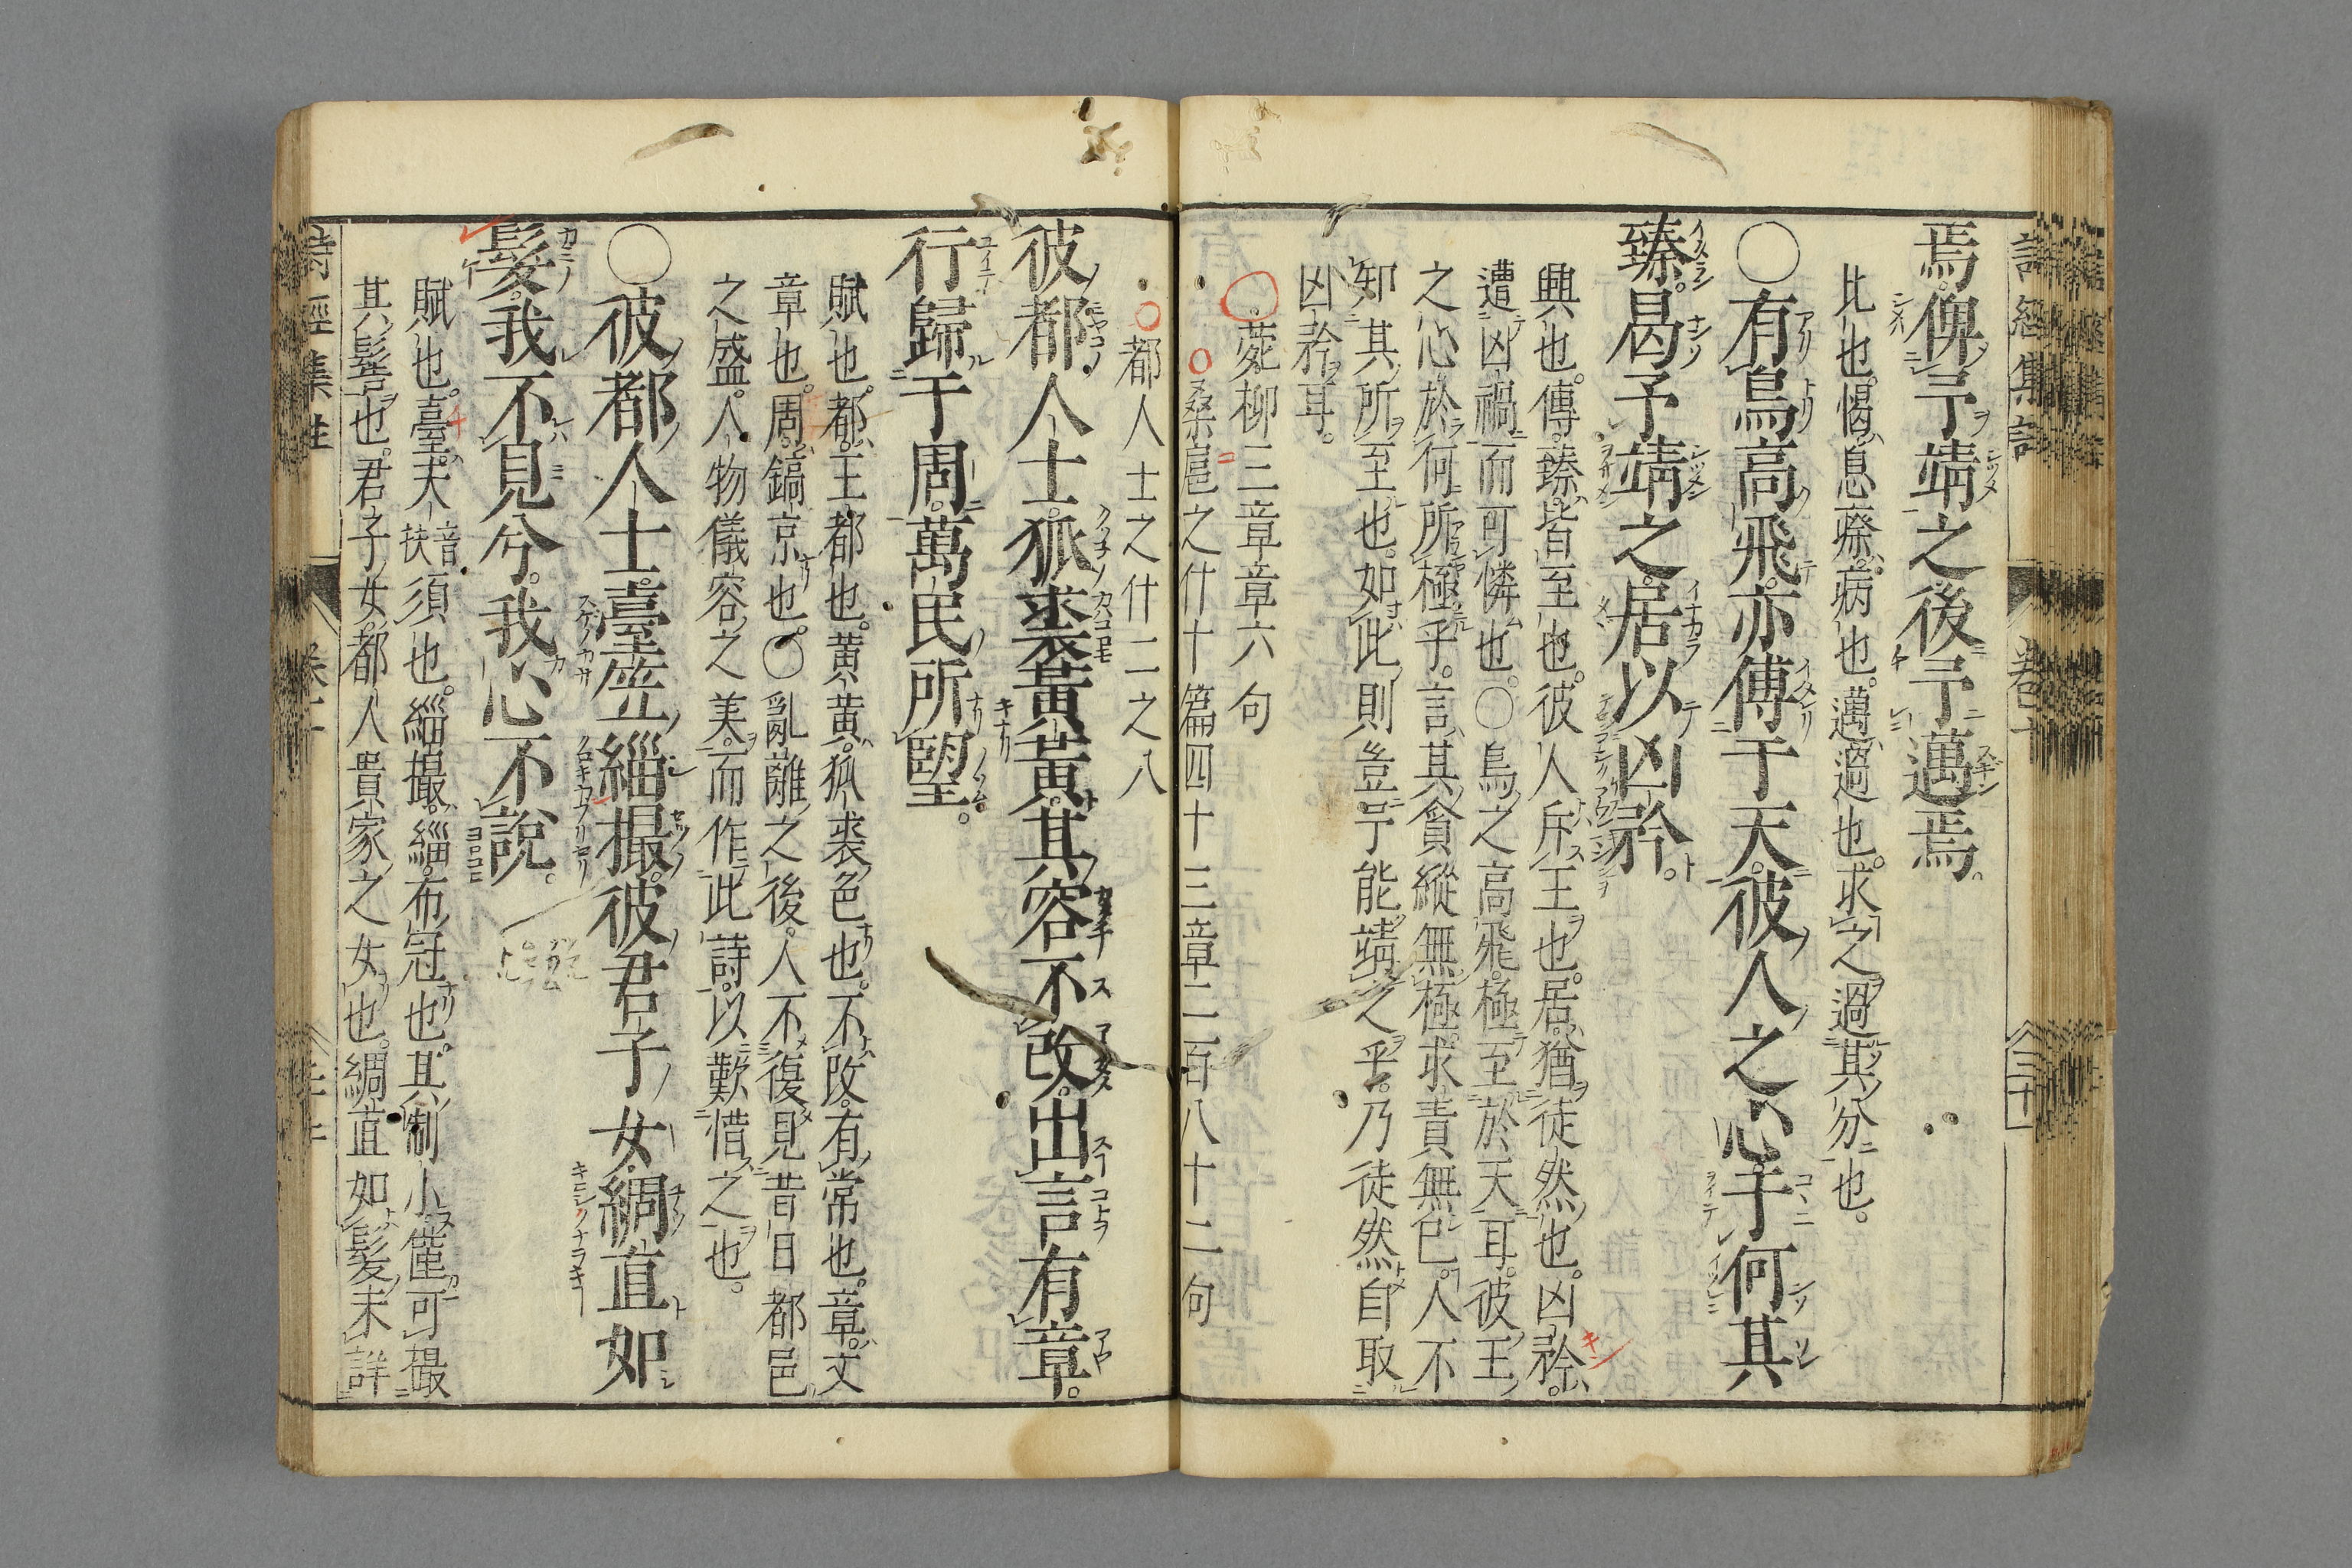 焉。俾予靖之後予邁焉。
比也。愒息。瘵病也。邁過也。求之過其分也。
○有鳥高飛。亦傅于天。彼人之心于何其
臻。曷予靖之。居以凶矜。
興也。傅臻皆至也。彼人斥王也。居猶徒然也。凶矜。
遭凶禍而可憐也。○鳥之高飛。極至於天耳。彼王
之心。於何所極乎。言其貪縱無極。求責無已。人不
知其所至也。如此則豈予能靖之乎。乃徒然自取
凶矜耳。
菀柳三章章六句
桑扈之什十篇四十三章二百八十二句
都人士之什二之八
彼都人士。狐裘黃黃。其容不改。出言有章。
行歸于周。萬民所望。
賦也。都王都也。黃黃。狐裘色也。不改。有常也。章。文
章也。周。鎬京也。○亂離之後。人不復見昔日都邑
之盛。人物儀容之美。而作此詩。以歎惜之也。
○彼都人士。臺笠緇撮。彼君子女。綢直如
髮。我不見兮。我心不說。
賦也。臺夫音扶須也。緇撮。緇布冠也。其制小僅可撮
其髻也。君子女。都人貴家之女也。綢直如髮。未詳
詩經集註
卷十
三十